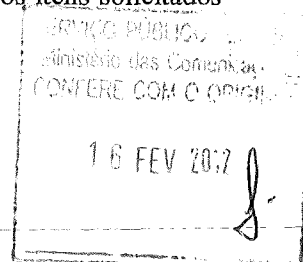 os itens solicitados
SERVIÇO PÚBLICO
Ministério das Comunicaç
CONFERE COM O ORIGIN
16 FEV 2012